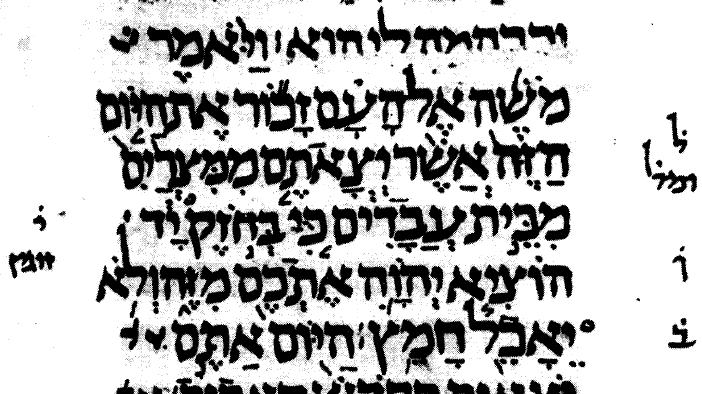 וּבַבְּהֵמָה לִי הוּא׃ וַיֹּאמֶר
מֹשֶׁה אֶל הָעָם זָכוֹר אֶת הַיּוֹם
הַזֶּה אֲשֶׁר יְצָאתֶם מִמִּצְרַיִם
מִבֵּית עֲבָדִים כִּי בְּחֹזֶק יָד
הוֹצִיא יְהוָה אֶתְכֶם מִזֶּה וְלֹא
יֵאָכֵל חָמֵץ׃ הַיּוֹם אַתֶּם